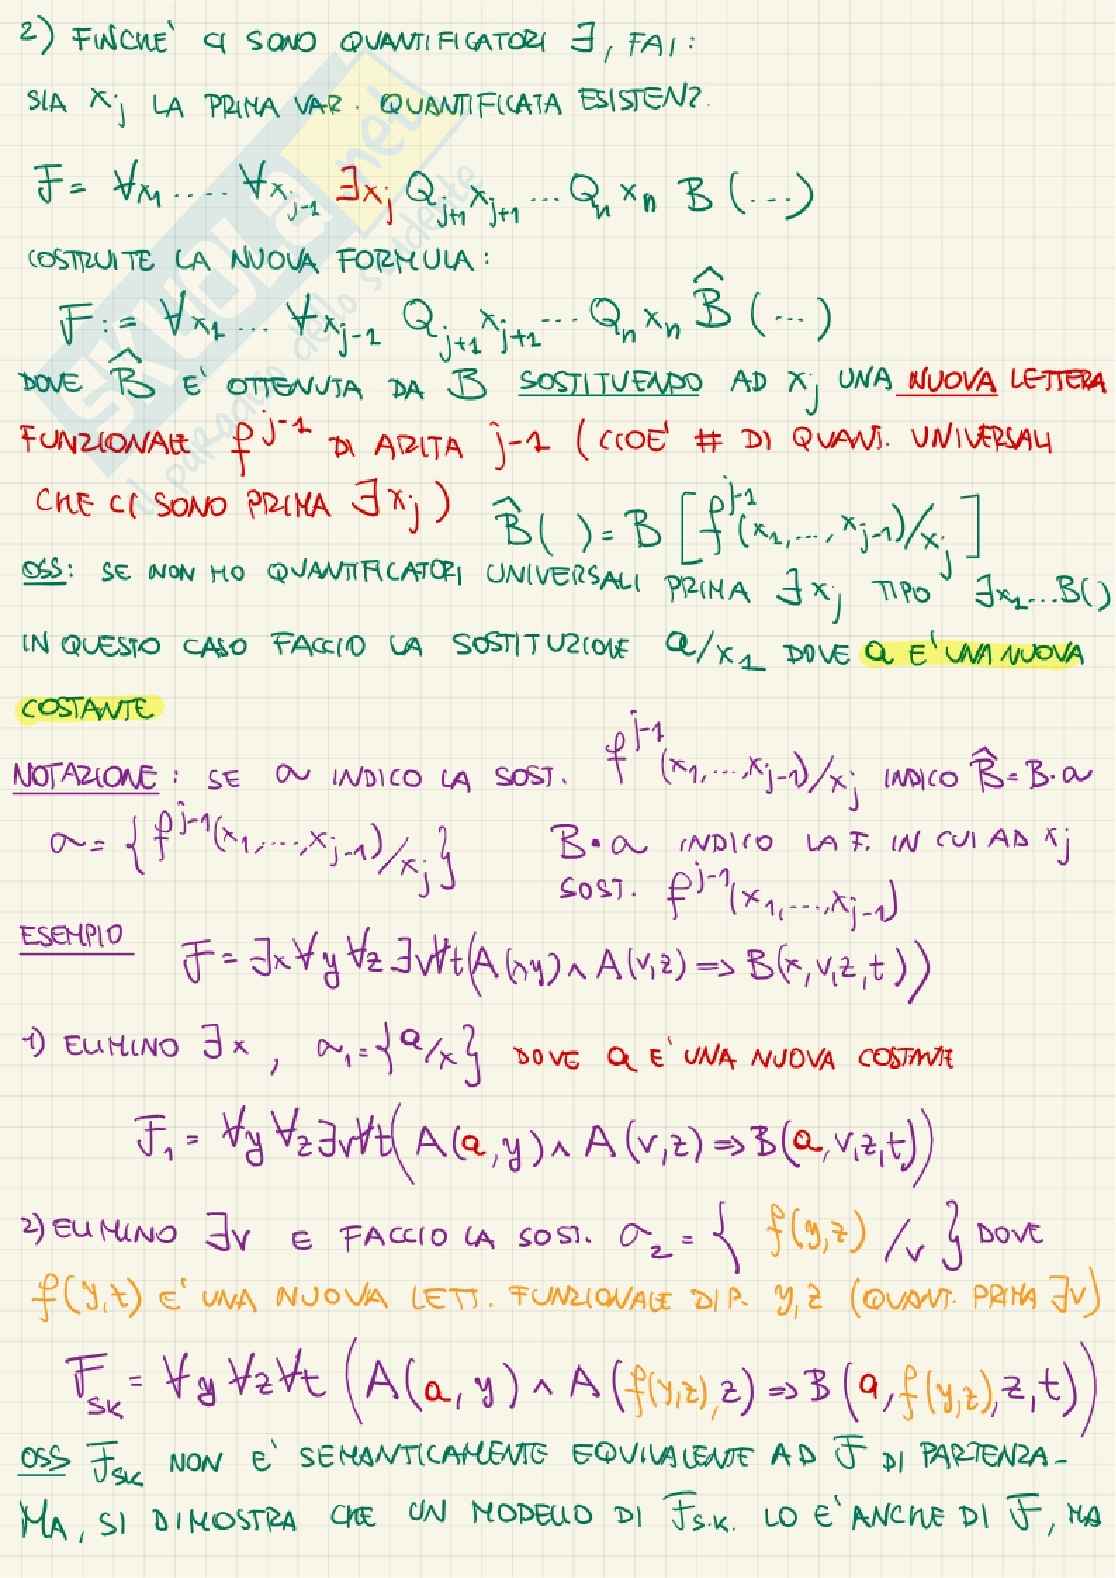 2) FINCHE' CI SONO QUANTIFICATORI ∃, FAI:
SIA xⱼ LA PRIMA VAR. QUANTIFICATA ESISTENZ.
F = ∀x₁ .... ∀xⱼ₋₁ ∃xⱼ Qⱼ₊₁xⱼ₊₁ ... Qₙxₙ B (...)
COSTRUITE LA NUOVA FORMULA:
F := ∀x₁ ... ∀xⱼ₋₁ Qⱼ₊₁xⱼ₊₁ ... Qₙxₙ B̂ (...)
DOVE B̂ E' OTTENUTA DA B SOSTITUENDO AD xⱼ UNA NUOVA LETTERA
FUNZIONALE f^{j-1} DI ARITA j-1 (CIOE' # DI QUANT. UNIVERSALI
CHE CI SONO PRIMA ∃xⱼ) B̂( ) = B [f^{j-1}(x₁,...,xⱼ₋₁)/xⱼ]
OSS: SE NON HO QUANTIFICATORI UNIVERSALI PRIMA ∃xⱼ TIPO ∃x₁...B()
IN QUESTO CASO FACCIO LA SOSTITUZIONE a/x₁ DOVE a E' UNA NUOVA
COSTANTE
NOTAZIONE: SE σ INDICO LA SOST. f^{j-1}(x₁,...,xⱼ₋₁)/xⱼ INDICO B̂ = B·σ
σ = {f^{j-1}(x₁,...,xⱼ₋₁)/xⱼ} B·σ INDICO LA F. IN CUI AD xⱼ
SOST. f^{j-1}(x₁,...,xⱼ₋₁)
ESEMPIO F = ∃x∀y∀z∃v∀t(A(x,y) ∧ A(v,z) => B(x,v,z,t))
1) ELIMINO ∃x, σ₁ = {a/x} DOVE a E' UNA NUOVA COSTANTE
F₁ = ∀y∀z∃v∀t(A(a,y) ∧ A(v,z) => B(a,v,z,t))
2) ELIMINO ∃v E FACCIO LA SOST. σ₂ = { f(y,z) /v } DOVE
f(y,z) E' UNA NUOVA LETT. FUNZIONALE DIP. y,z (QUANT. PRIMA ∃v)
F_SK = ∀y∀z∀t (A(a,y) ∧ A(f(y,z),z) => B(a,f(y,z),z,t))
OSS F_SK NON E' SEMANTICAMENTE EQUIVALENTE AD F DI PARTENZA-
MA, SI DIMOSTRA CHE UN MODELLO DI F_S.K. LO E' ANCHE DI F, MA
SKUOLA.net
il paradiso dello studente